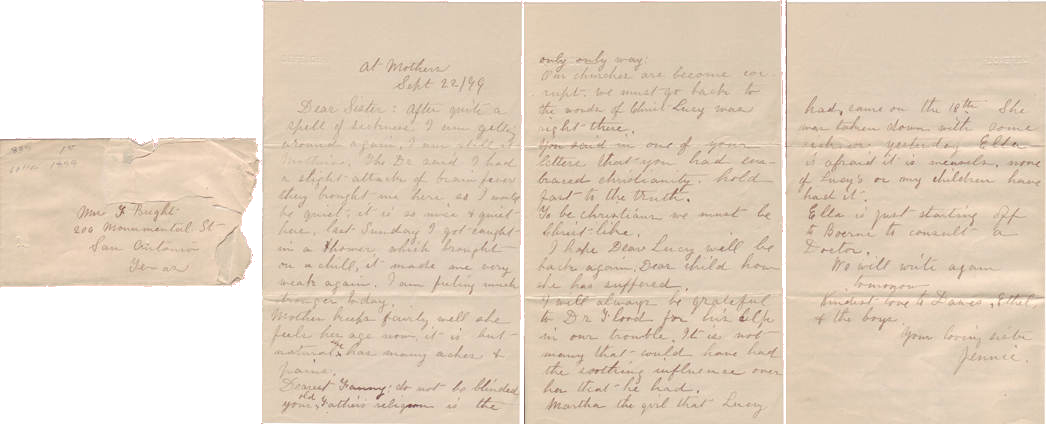 1st
1899
Mrs F Bright
206 Monumental St
San Antonio
Texas
At Mothers
Sept 22/99
Dear Sister: After quite a
spell of sickness I am getting
around again. I am still at
Mothers. The Dr said I had
a slight attack of brain fever
they brought me here so I would
be quiet; it is so nice & quiet
here. last Sunday I got caught
in a shower which brought
on a chill, it made me very
weak again. I am feeling much
stronger today.
Mother keeps fairly well she
feels her age now, it is but
natural she has many aches &
pains.
Dearest Fanny: do not be blinded
your old Father's religion is the
only only way:
Our churches are become cor
rupt. we must go back to
the words of Christ Lucy was
right there.
You said in one of your
letters that you had em-
braced christianity. hold
fast to the truth.
To be christians we must be
Christ-like.
I hope Dear Lucy will be
back again. Dear child how
she has suffered.
I will always be grateful
to Dr Flood for his help
in our trouble. It is not
many that would have had
the soothing influence over
her that he had.
Martha the girl that Lucy
had, came on the 18th She
was taken down with some
yesterday Ella
is afraid it is measels, none
of Lucy's or my children have
had it.
Ella is just starting off
to Boerne to consult a
Doctor.
We will write again
tomorrow
Kindest love to Dawes, Ethel
& the boys
Your loving sister
Jennie.